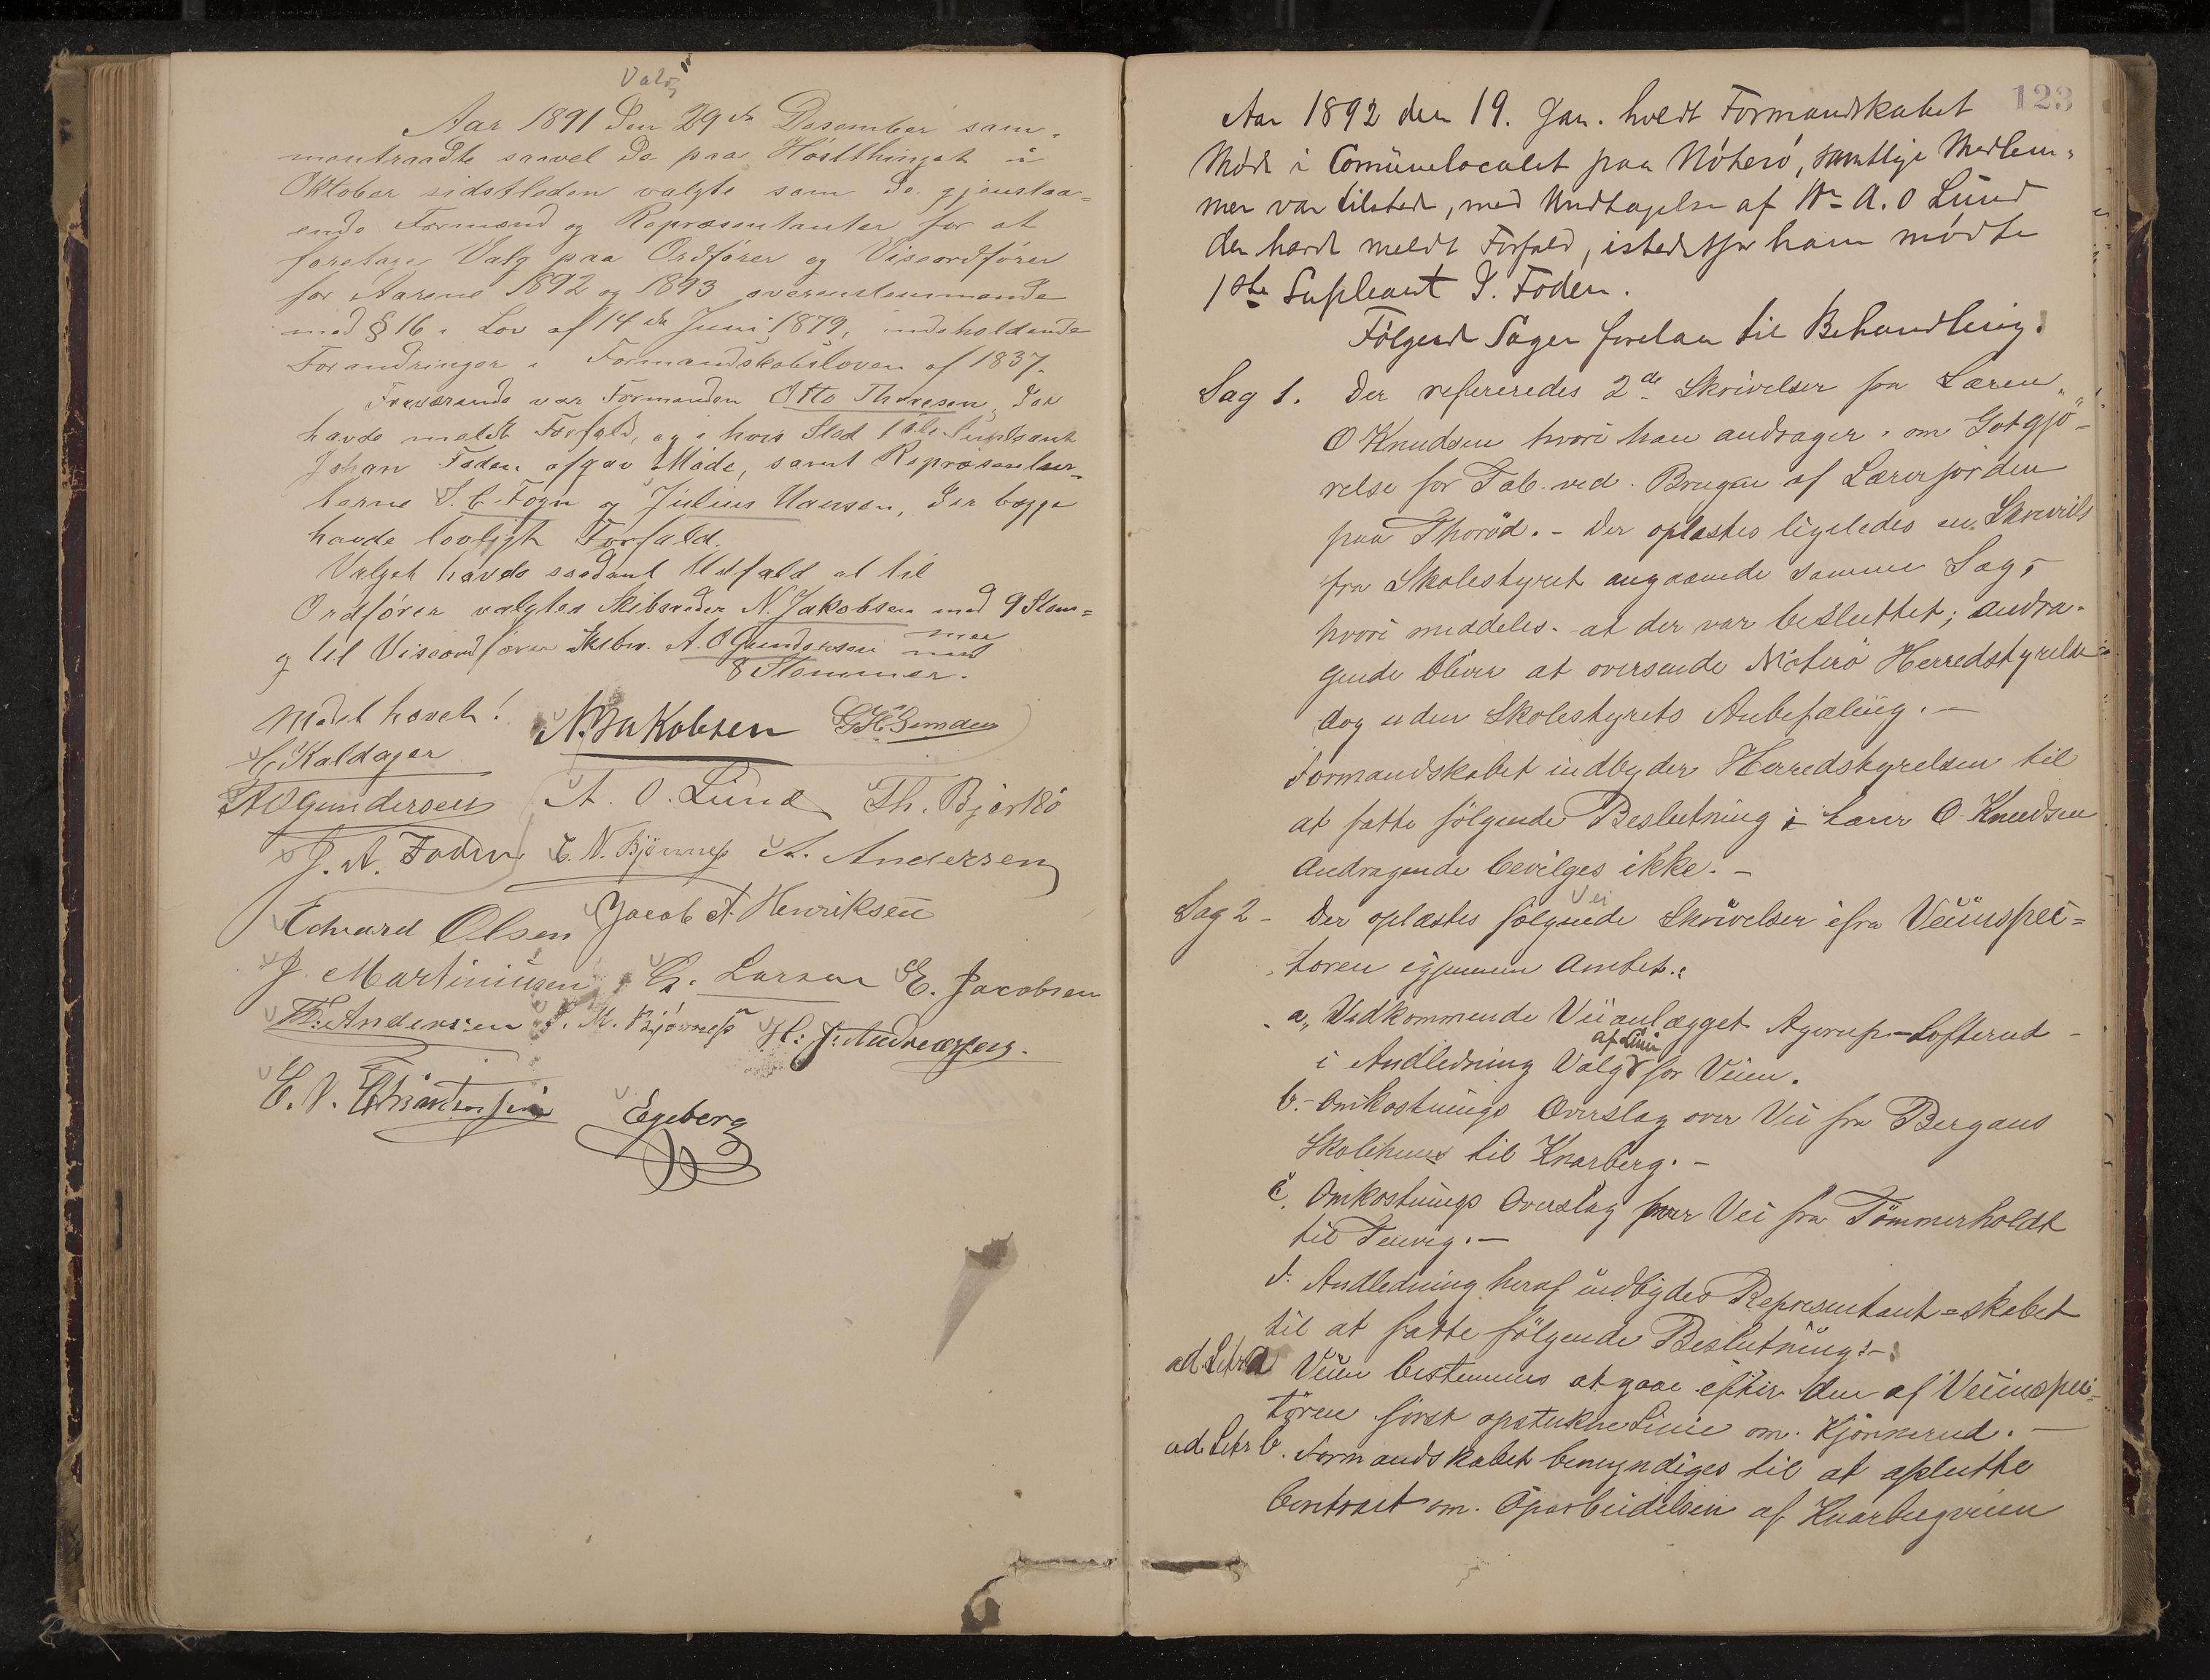 Valg
Aar 1891 Den 29de Desember sam-
mentraadte saavel de paa Høstthinget i
Oktober sidstleden valgte som de gjenstaa-
ende Formænd og Repræsentanter for at
foretage Valg paa Ordfører og Viseordfører
for Aarene 1892 og 1893 overenstemmende
med § 16 i Lov af 14de Juni 1879, indeholdende
Forandringer i Formandskabsloven af 1837.
Fraværende var Formanden Otto Thoresen, der
havde meldt Forfald, og i hvis Sted 1ste Supleant
Johan Foden afgav Møde, samt Repræsentan-
terne S. C. Føyn og Julius Hansen, der begge
havde lovligt Forfald.
Valget havde saadant Udfald at til
Ordfører valgtes Skibsreder N. Jakobsen med 9 Stem-
mer
og til Viseordfører Skibsr. A. O Gundersen med
8 Stemmer.
Mødet hævet!
N. Jakobsen
C. Kaldager
A O Gundersen A. O. Lund Th. Bjerkø
J. A. Foden E. N. Bjønnes A. Andersen
Edvard Olsen Jacob A. Henriksen
J Martinusen G. Larsen E. Jacobsen
Th. Andersen S. M. Bjønnes H. J. Andreassen.
E. V. Christoffersen Egeberg
123
Aar 1892 den 19. Jan. holdt Formandskabet
Møde i Comünelocalet paa Nøterø, samtlige Medlem-
mer var tilstede, med Undtagelse af Hr A. O Lund
der havde meldt Forfald, istedetfor ham mødte
1ste Supleant J. Foden.
Følgende Sager forelaa til Behandling.
Sag 1. Der refereredes 2de Skrivelser fra Lærer
O Knudsen hvori han andrager om Gotgjø-
relse for Tab ved Brugen af Lærerjorden
paa Thorød. - Der oplæstes ligeledes en Skrivels
fra Skolestyret angaaende samme Sag,
hvori meddeles at der var besluttet; Andra-
gende bliver at oversende Nøterø Herredstyrelse
dog uden Skolestyrets Anbefaling. -
Formandskabet indbyder Herredstyrelsen til
at fatte følgende Beslutning: Lærer O. Knudsen
Andragende bevilges ikke. -
Vei
Sag 2 - Der oplæstes følgende Skrivelser ifra Veiinspec=
toren igjennem Amtet.:
a, Vedkommende Veianlægget Agerup-Lofterud -
af Linie
i Andledning Valg for Veien.
b. - Omkostnings Overslag over Vei fra Bergans
Skolehuus til Knarberg. -
c. Omkostnings Overslag over Vei fra Tømmerholdt
til Tenvig. -
I Andledning heraf indbydes Representant-skabet
til at fatte følgende Beslutning: -
ad Letr a Veien bestemmes at gaae efter den af Veiinspec-
tøren først opstukne Linie om Kjønnerud. -
ad Letr b. Formandskabet bemyndiges til at afslutte
Contract om Oparbeidelsen af Knarbergveien